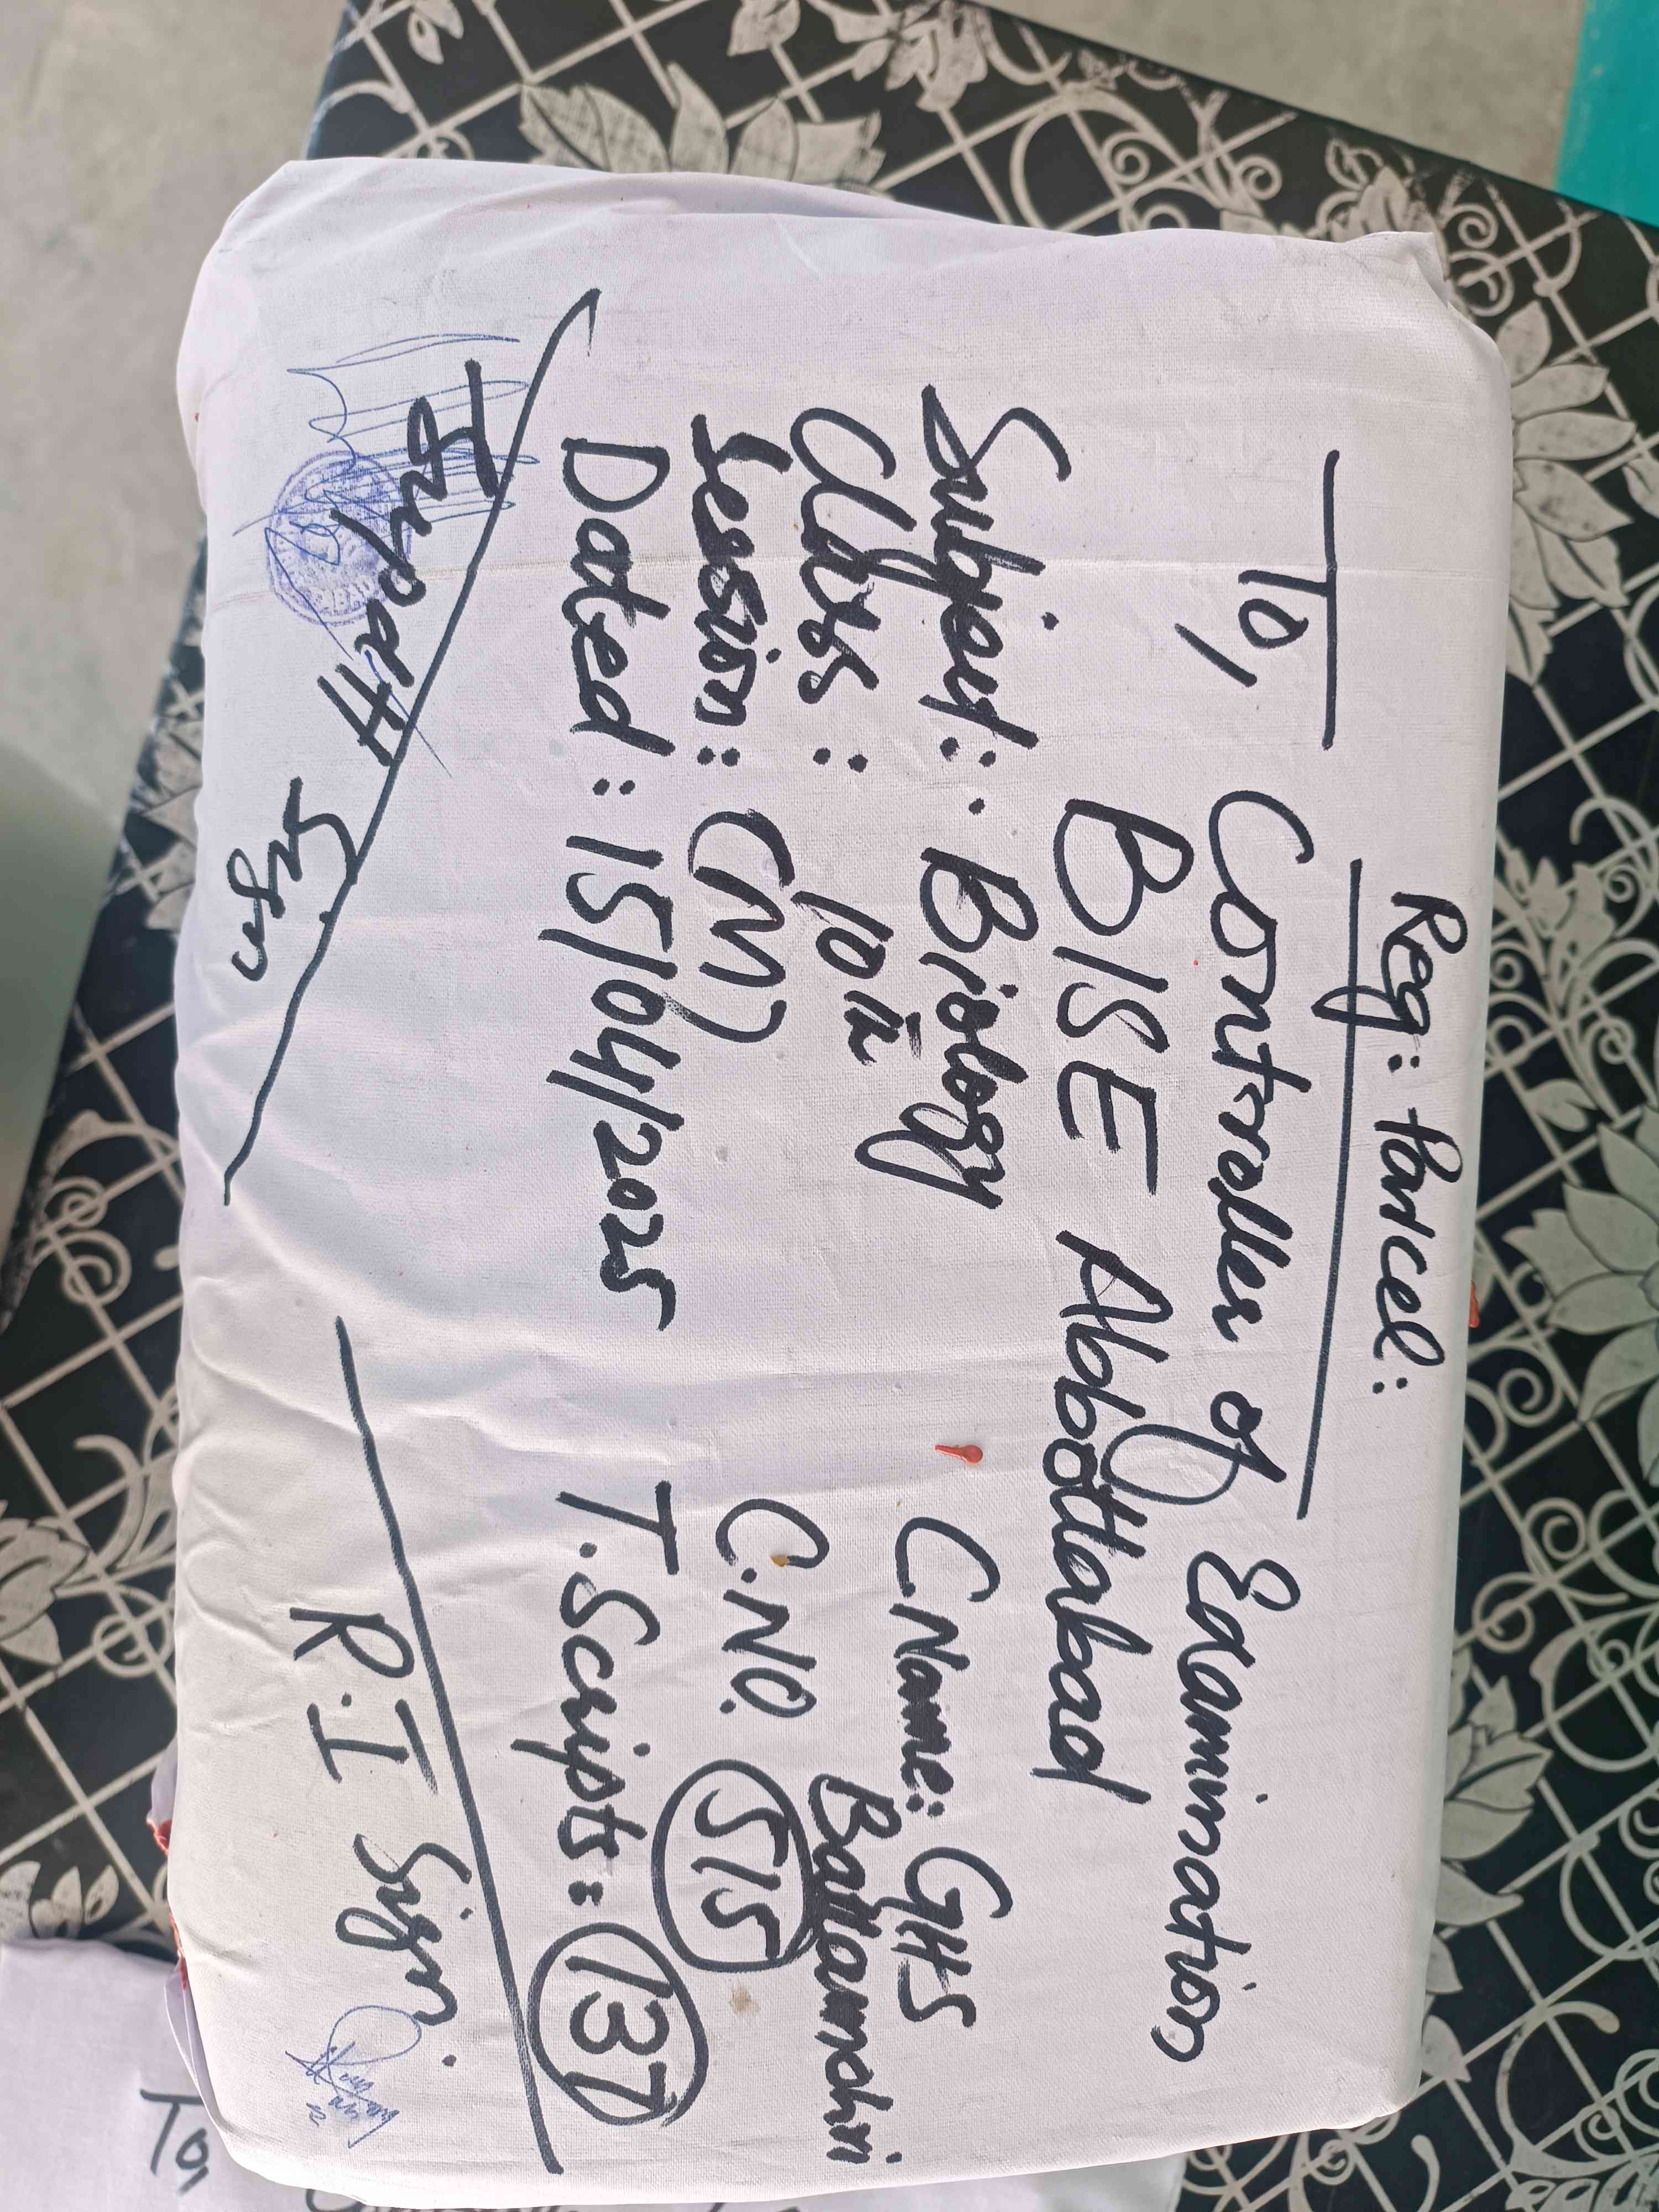 Reg: Parcel:
To,
Controller of Examination
BISE Abbottabad
Subject: Biology
C Name: GHS
Battamori
Class: 10th
Session: (M)
C.NO. 515
Dated: 15/04/2025
T.Scripts: 137
Supdtt
Sign
R.I Sign.
To,